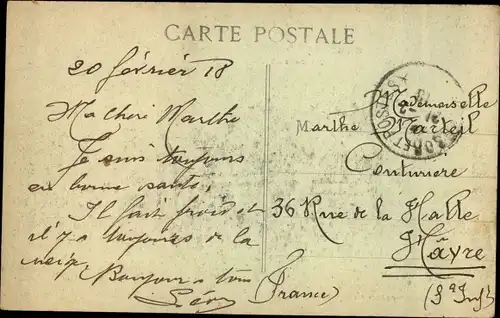 CARTE POSTALE
20 février 18
Ma chère Marthe
Je suis toujours
en bonne santé,
Il fait froid et
il y a toujours de la
neige
Bonjour a tous
Léon
Mademoiselle
Marthe Marteil
Couturière
36 Rue de la Halle
Hâvre
(France)
(Sre Infre)